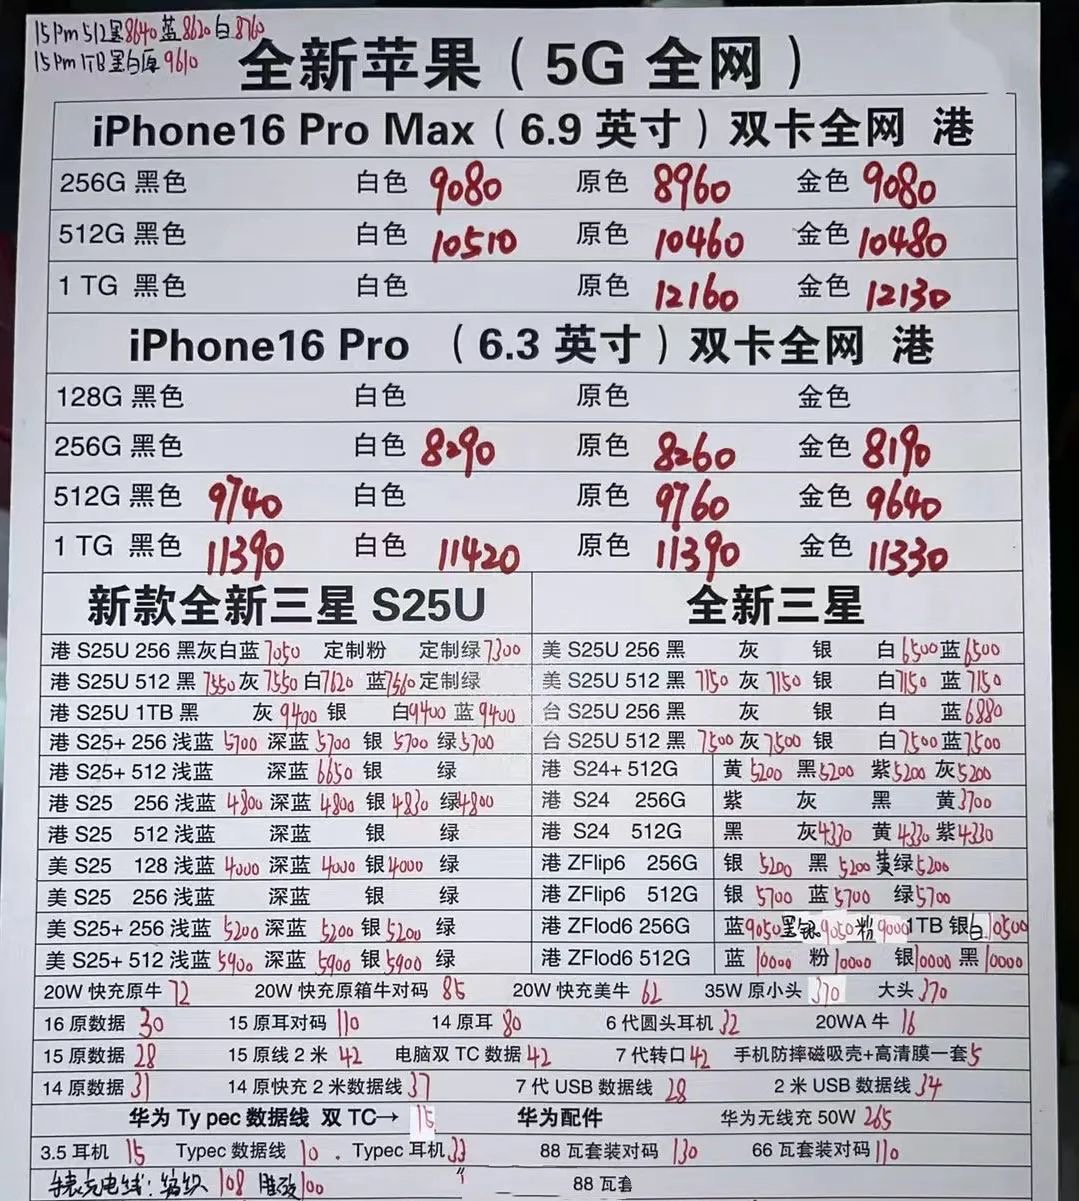 15Pm 512黑8640 蓝8620 白8760
15Pm 1TB黑白原9610
全新苹果（5G 全网）
iPhone16 Pro Max（6.9 英寸）双卡全网 港
256G 黑色 白色 9080 原色 8960 金色 9080
512G 黑色 白色 10510 原色 10460 金色 10480
1 TG 黑色 白色 原色 12160 金色 12130
iPhone16 Pro （6.3 英寸）双卡全网 港
128G 黑色 白色 原色 金色
256G 黑色 白色 8290 原色 8260 金色 8190
512G 黑色 9740 白色 原色 9760 金色 9640
1 TG 黑色 11390 白色 11420 原色 11390 金色 11330
新款全新三星 S25U
港 S25U 256 黑灰白蓝 7050 定制粉 定制绿 7300
港 S25U 512 黑 7550 灰 7550 白 7620 蓝 7560 定制绿
港 S25U 1TB 黑 灰 9400 银 白 9400 蓝 9400
港 S25+ 256 浅蓝 5700 深蓝 5700 银 5700 绿 5700
港 S25+ 512 浅蓝 深蓝 6650 银 绿
港 S25 256 浅蓝 4800 深蓝 4800 银 4830 绿 4800
港 S25 512 浅蓝 深蓝 银 绿
美 S25 128 浅蓝 4000 深蓝 4000 银 4000 绿
美 S25 256 浅蓝 深蓝 银 绿
美 S25+ 256 浅蓝 5200 深蓝 5200 银 5200 绿
美 S25+ 512 浅蓝 5900 深蓝 5900 银 5900 绿
全新三星
美 S25U 256 黑 灰 银 白 6500 蓝 6500
美 S25U 512 黑 7150 灰 7150 银 白 7150 蓝 7150
台 S25U 256 黑 灰 银 白 蓝 6880
台 S25U 512 黑 7500 灰 7500 银 白 7500 蓝 7500
港 S24+ 512G 黄 5200 黑 5200 紫 5200 灰 5200
港 S24 256G 紫 灰 黑 黄 3700
港 S24 512G 黑 灰 4330 黄 4330 紫 4330
港 ZFlip6 256G 银 5200 黑 5200 黄绿 5200
港 ZFlip6 512G 银 5700 蓝 5700 绿 5700
港 ZFlod6 256G 蓝 9050 黑银 9050 粉 9000 1TB 银白 10500
港 ZFlod6 512G 蓝 10000 粉 10000 银 10000 黑 10000
20W 快充原牛 72 20W 快充原箱牛对码 85 20W 快充美牛 62 35W 原小头 370 大头 370
16 原数据 30 15 原耳对码 110 14 原耳 80 6 代圆头耳机 32 20WA 牛 16
15 原数据 28 15 原线 2 米 42 电脑双 TC 数据 42 7 代转口 42 手机防摔磁吸壳+高清膜一套 5
14 原数据 31 14 原快充 2 米数据线 37 7 代 USB 数据线 28 2 米 USB 数据线 34
华为 Ty pec 数据线 双 TC→ 15 华为配件 华为无线充 50W 265
3.5 耳机 15 Typec 数据线 10 . Typec 耳机 33 88 瓦套装对码 130 66 瓦套装对码 110
手表充电线: 编织 108 100 88 瓦套